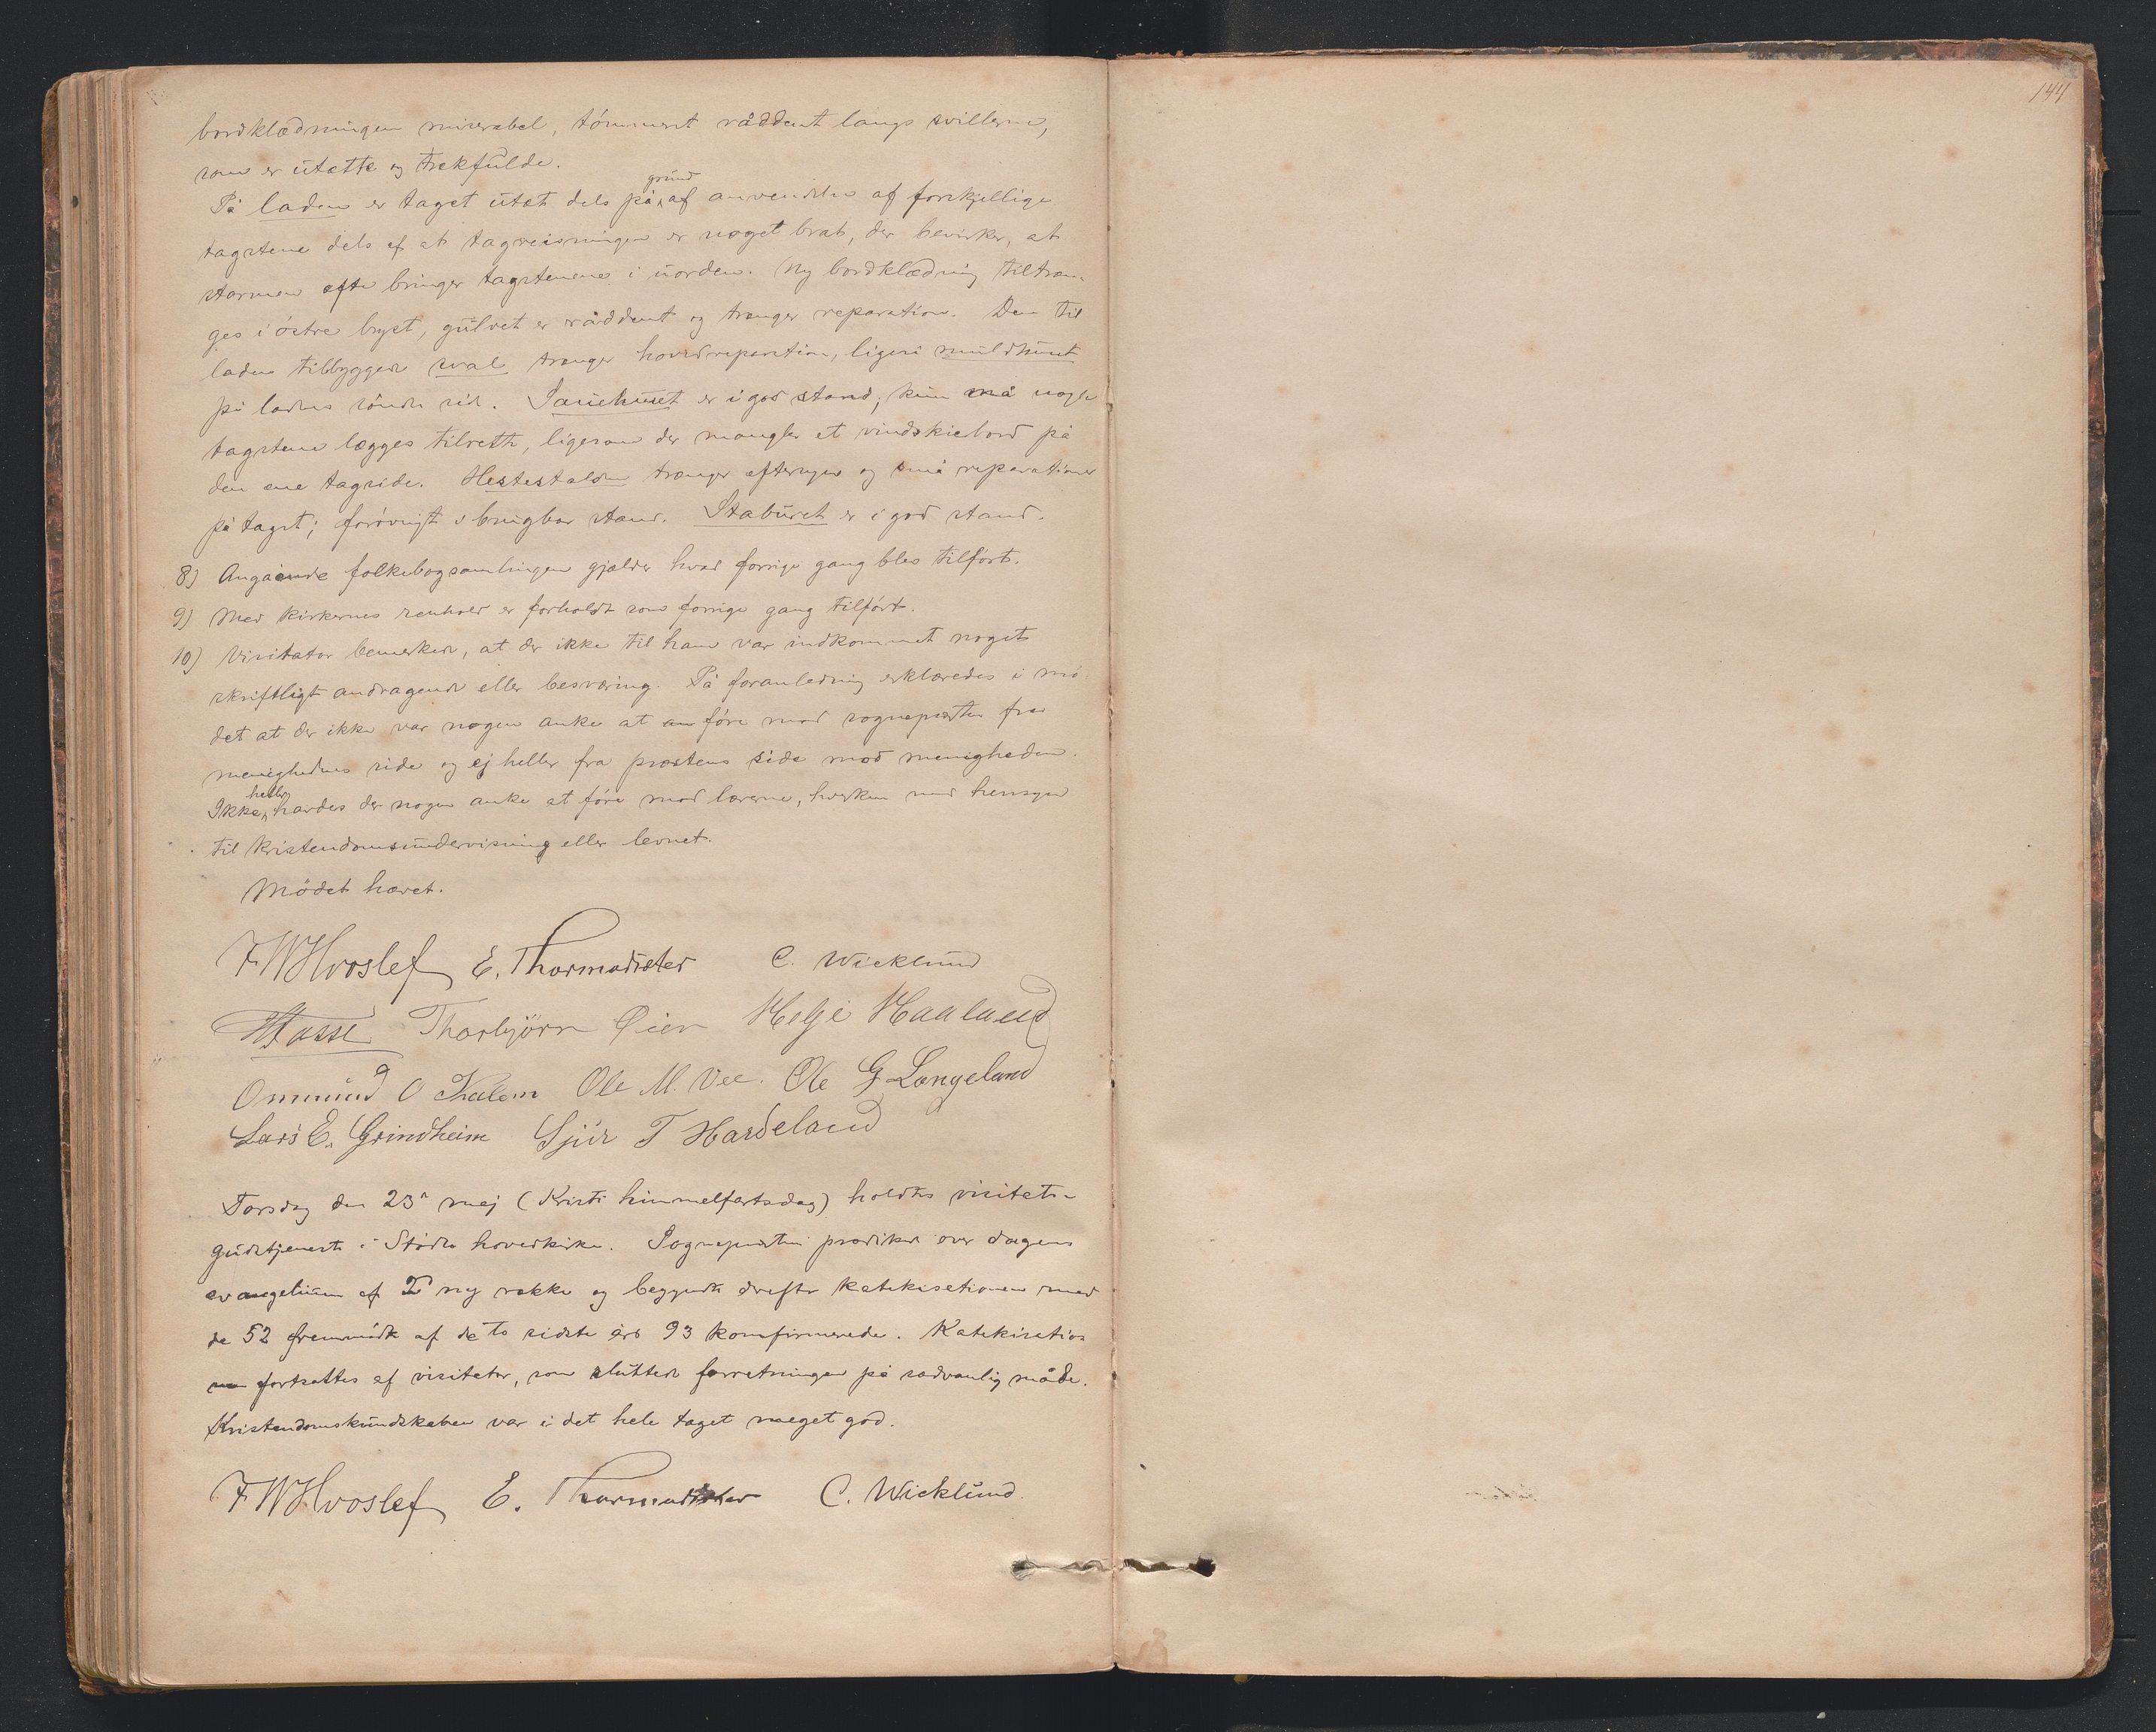 144
bordklædningen miserabel, tömmeret råddent langs svillerne,
som er utætte og trækfulde.
På laden er taget utæt dels på grund af anvendelse af forskjellige
tagstene dels af at tagreisningen er noget brat, der bevirker, at
stormen ofte bringer tagstenene i uorden. Ny bordklædning tiltræn-
ges i östre bryst, gulvet er råddent og trænger reparation. Den til
laden tilbyggede sval trænger hovedreparation, ligeså smuldhuset
på ladens söndre side. Sauehuset er i god stand; kun må nogle
tagstene lægges tilrette, ligesom der mangler et vindskiebord på
den ene tagside. Hestestalden trænger eftersyn og små reparationer
på taget; forövrigt i brugbar stand. Staburet er i god stand.
8) Angaående folkebogsamlingen gjælder hvad forrige gang blev tilfört.
9) Med kirkernes renhold er forholdt som forrige gang tilfört.
10) Visitator bemerkede, at der ikke til ham var indkommet noget
skriftligt andragende eller besværing. På foranledning erklæredes i mö-
det at der ikke var nogen anke at anföre mod sognepresten fra
menighedens side og ej heller fra præstens side mod menigheden.
Ikke heller havdes der nogen anke at före mod lærerne, hverken med hensyn
til kristendomsundervisning eller levnet.
Mödet hævet.
F W Hvoslef E. Thormodsæter C. Wicklund
Thorbjörn Öien Helje Haaland
Ommund O Kalem Ole M. Vee. Ole G Langeland
Lars E. Grindheim Sjur T Hardeland
Torsdag den 23de maj (Kristi himmelfartsdag) holdtes visitats-
gudstjeneste i Stödle hovedkirke. Sognepresten prædikede over dagens
evangelium af I ny række og begyndte derefter katekisationen med
de 52 fremmödte af de to sidste års 93 konfirmerede. Katekisation
en fortsattes af visitator, som sluttede forretningen på sædvanlig måde.
Kristendomskundskaben var i det hele taget meget god.
F W Hvoslef E. Thormodsæter C. Wicklund.